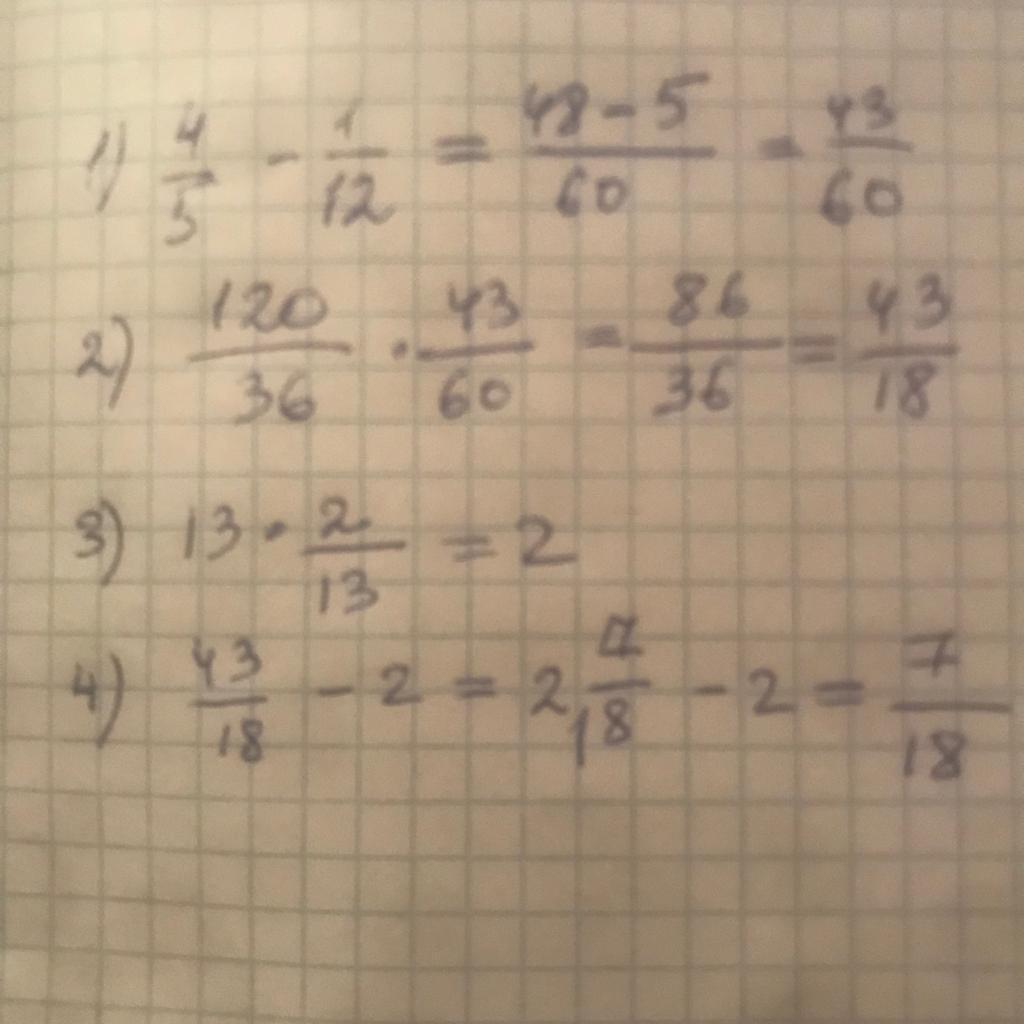 1) 4/5 - 1/12 = 48-5/60 = 43/60
2) 120/36 · 43/60 = 86/36 = 43/18
3) 13 · 2/13 = 2
4) 43/18 - 2 = 2 7/18 - 2 = 7/18